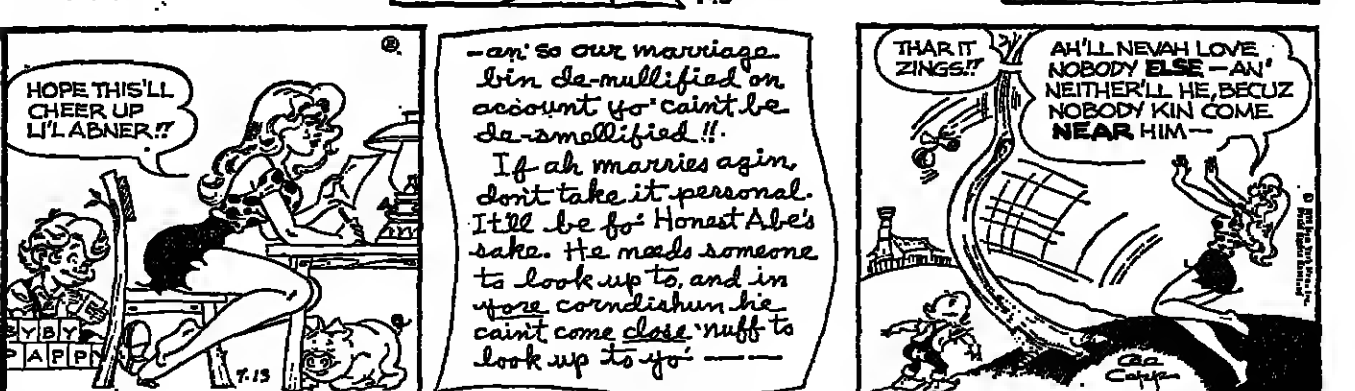 HOPE THIS'LL
CHEER UP
LI'L ABNER!!
YBY
PAPP
7-13
-an' so our marriage
bin de-nullified on
account yo' cain't be
de-smellified!!
If ah marries agin,
don't take it personal.
It'll be fo' Honest Abe's
sake. He needs someone
to look up to, and in
yore corndishun he
cain't come close 'nuff to
look up to yo' ———
THAR IT
ZINGS!!
AH'LL NEVAH LOVE
NOBODY ELSE — AN'
NEITHER'LL HE, BECUZ
NOBODY KIN COME
NEAR HIM —
AL
CAPP